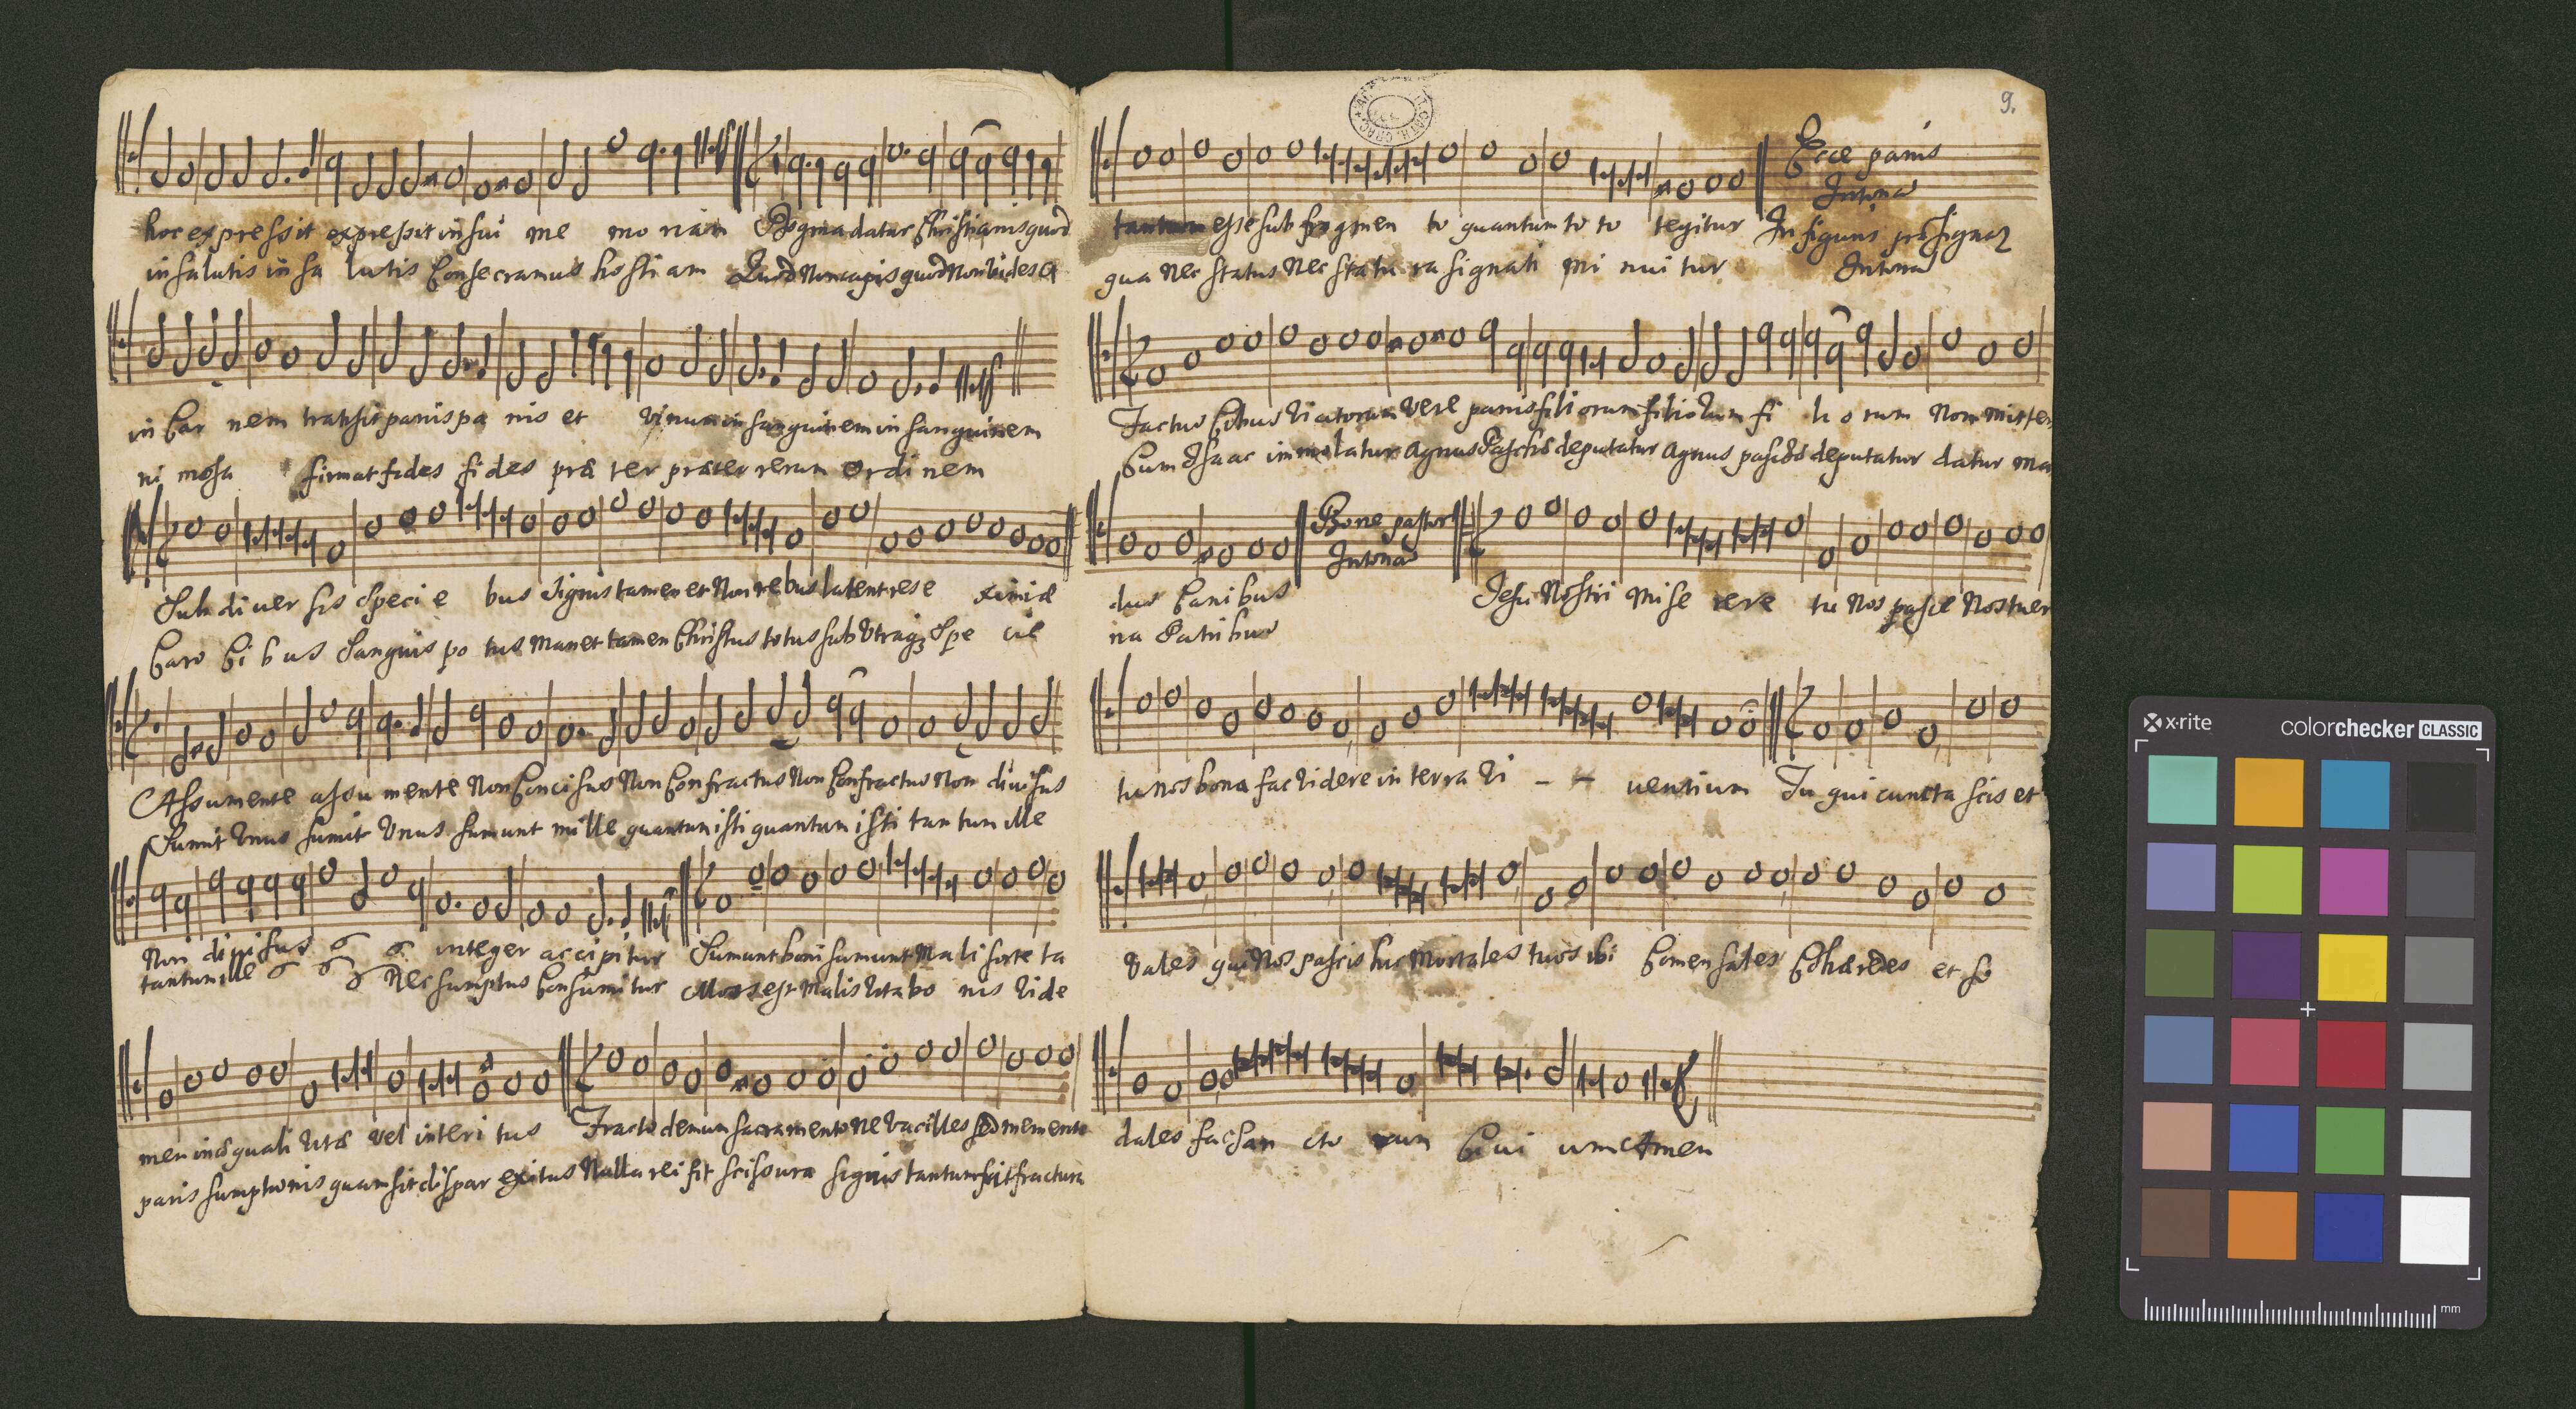 hoc expressit expressit in sui me mo riam Dogma datur Christianis quod
in salutis in sa lutis Consecramus hostiam Quod Non capis quod Non vides a
in Car nem transit panis pa nis et vinum in sanguinem in sanguinem
ni mosa firmat fides fides præ ter præter rerum Ordi nem
Sub di uer sis Speci e bus Signis tamen et Non rebus latent res e ximiæ
Caro Ci b us Sanguis po tus Manet tamen Christus totus sub Vtraq3 Spe cie
A Assumente assu mente Non Concisus Non Confractus Non Confractus Non diuisus
Sumit Vnus sumit Vnus sumunt mille quantum isti quantum isti tantum ille
Non diuisus integer accipitur Sumunt boni sumunt Mali sorte ta
tantum ille Nec sumptus Consumitur Mors est Malis Vita bo nis Vide
men inæquali Vitæ vel interi tus Fracto demum sacramento Ne Vacilles sed memento
paris sumptionis quam sit dispar exitus Nulla rei fit scissura signis tantum fit fractura
9.
tantum esse sub fragmen to quantum to to tegitur
Ecce panis
Intona
qua Nec status Nec statu ra signati mi nui tur
In figuris præsignat
Intona
Factus Cibus Viatorum Vere panis fili orum filiorum fi li o rum Non mitten
Cum Isaac immolatur Agnus Paschæ deputatur Agnus paschæ deputatur datur ma
Bone pastor
Intona
dus Canibus Jesu Nostri Mise rere tu Nos pasce Nos tuer
na Patribus
tu nos bona fac Videre in terra Vi - - uentium Tu qui cuncta scis et
Vales qui Nos pascis hic Mortales tuos ibi Comensales Cohæredes et so
dales fac San cto rum Ciui um Amen
x-rite colorchecker CLASSIC
mm